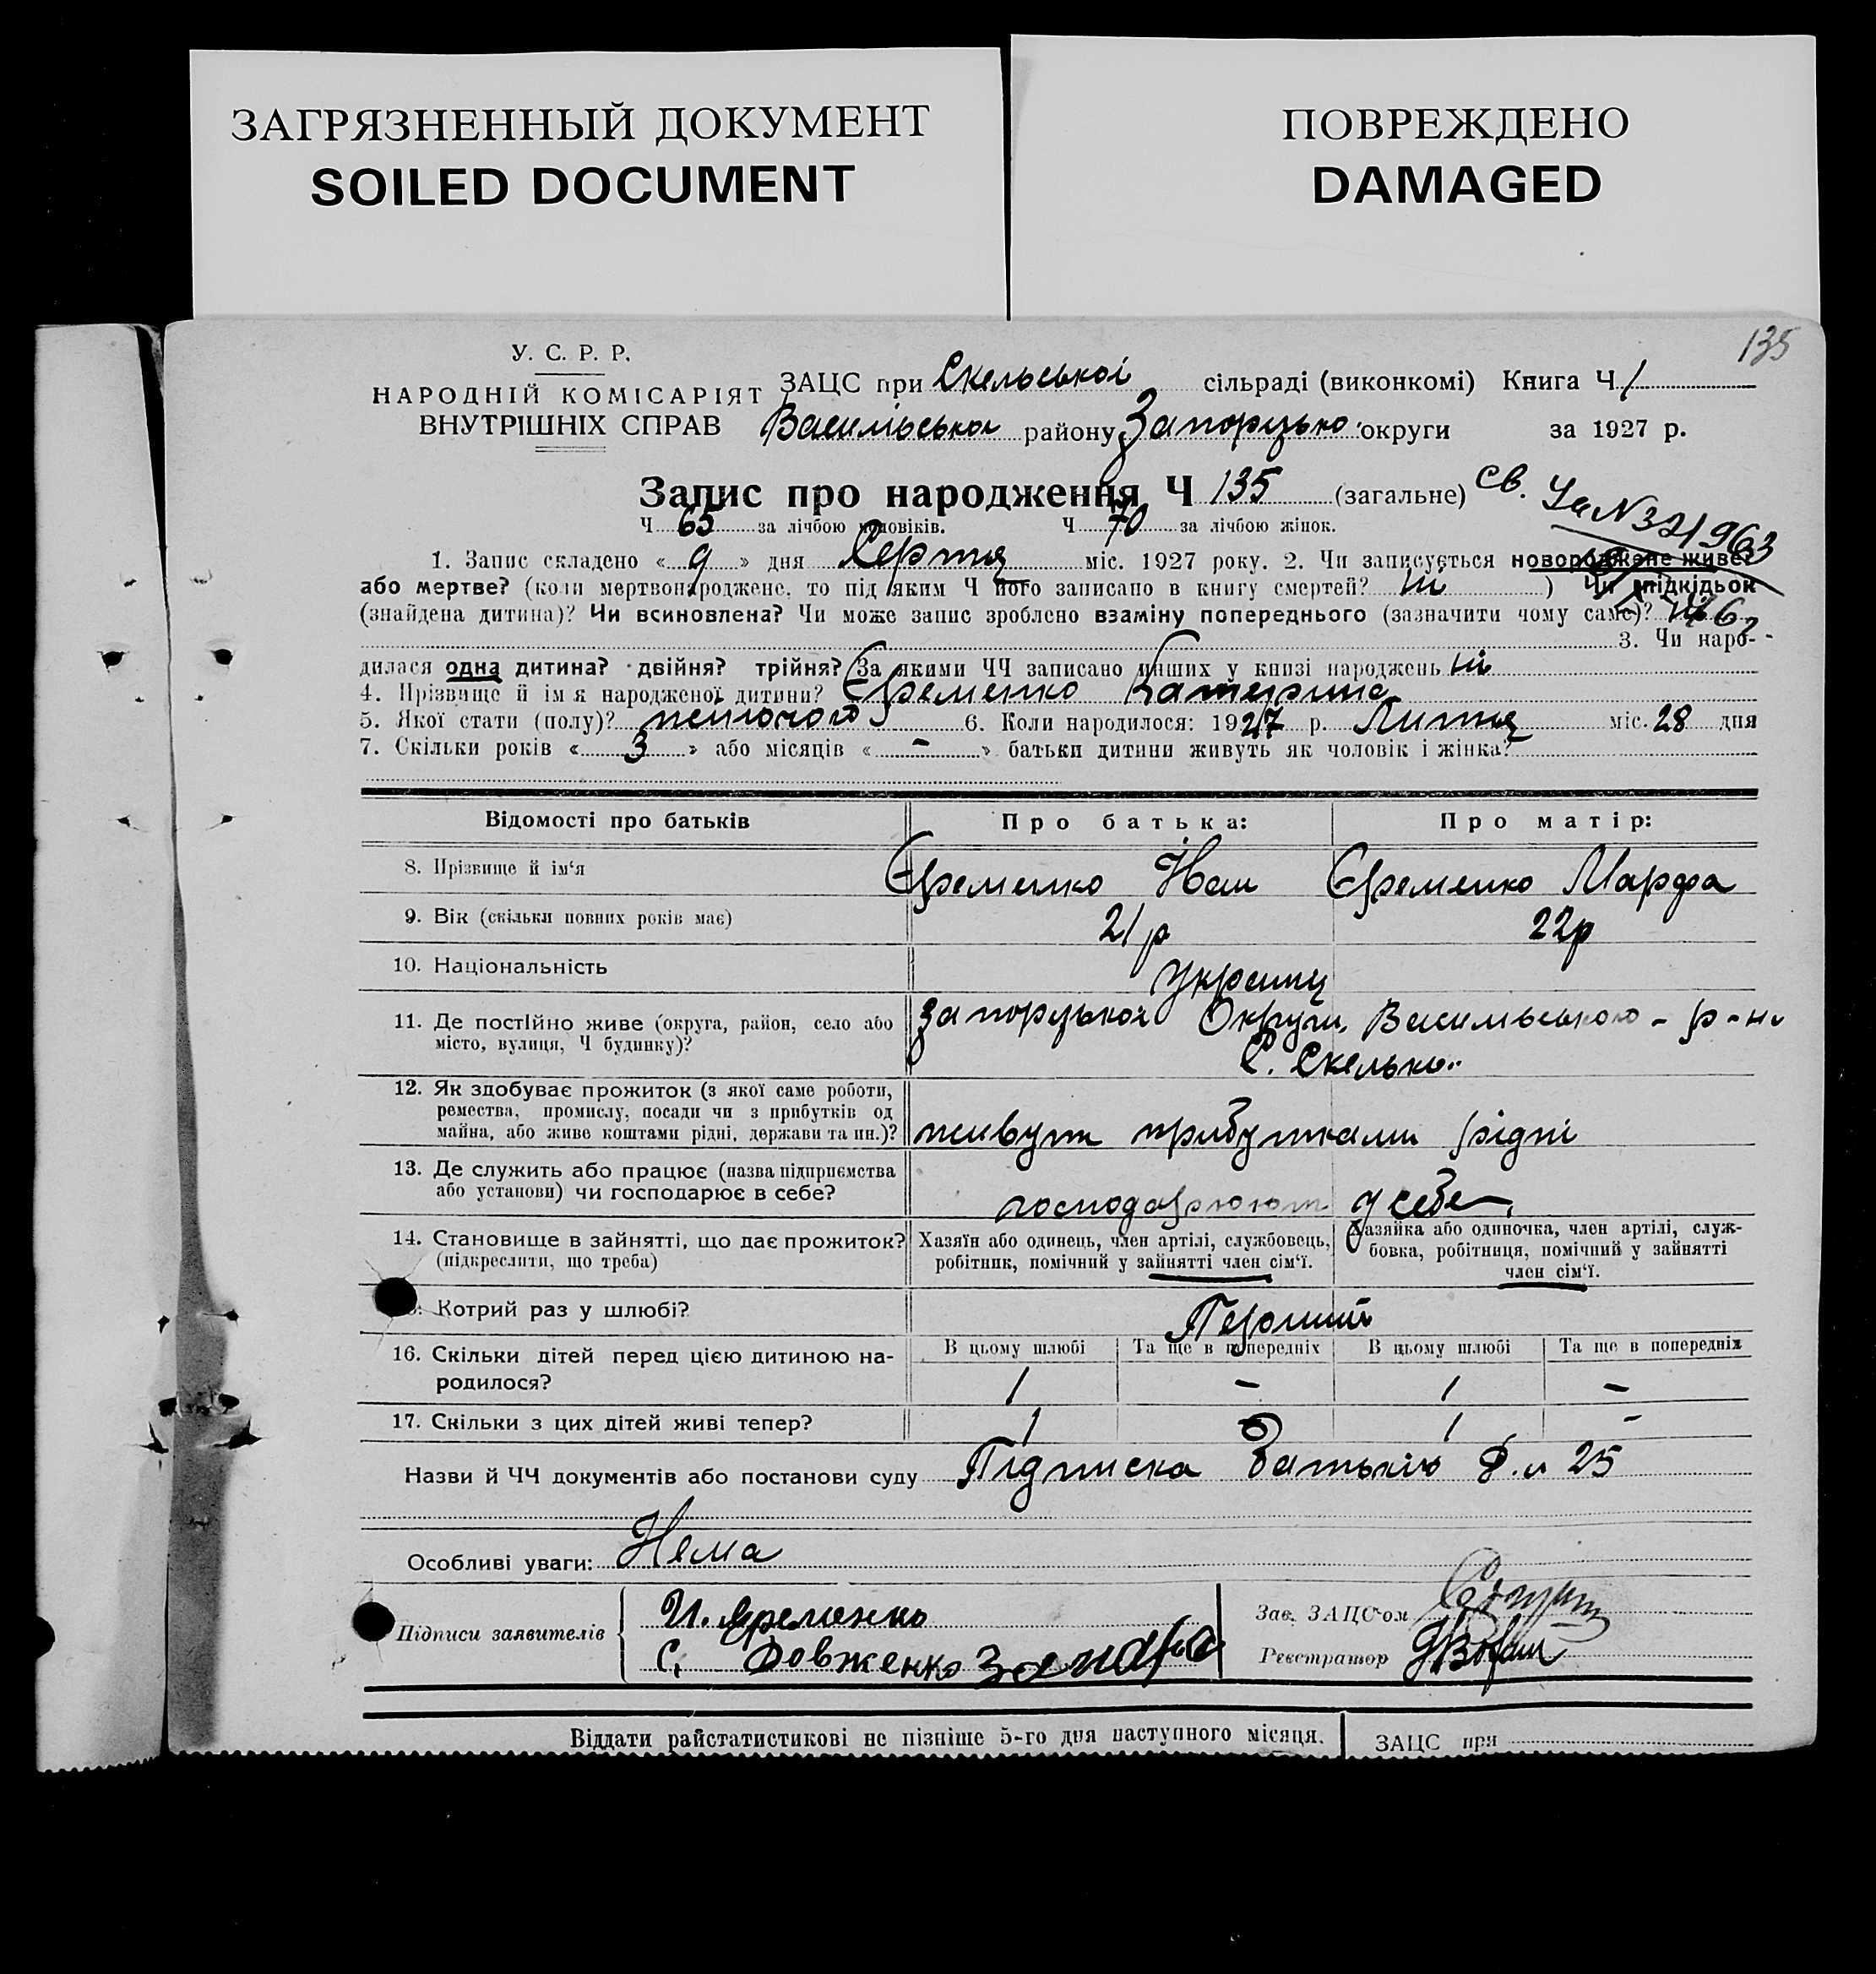 ЗАГРЯЗНЕННЫЙ ДОКУМЕНТ
SOILED DOCUMENT
ПОВРЕЖДЕНО
DAMAGED
135
У. С. Р. Р.
НАРОДНІЙ КОМІСАРІЯТ
ВНУТРІШНІХ СПРАВ
ЗАЦС при Скельської сільраді (виконкомі) Книга Ч. 1
Василівська району Запорізько округи за 1927 р.
Запис про народження Ч 135 (загальне) Св.
Ч 65 за лічбою чоловіків. Ч 70 за лічбою жінок.
1. Запис складено « 9 » дня Серпня міс. 1927 року. 2. Чи записується новороджене живе?
або мертве? (коли мертвонароджене, то під яким Ч його записано в книгу смертей? ні ) Чи підкідьок
(знайдена дитина)? Чи всиновлена? Чи може запис зроблено взаміну попереднього (зазначити чому саме)?
3. Чи наро-
дилася одна дитина? двійня? трійня? (За якими ЧЧ записано инших у книзі народжень ні
4. Прізвище й імя народженої дитини? Єременко Катерина
5. Якої стати (полу)? жіночого 6. Коли народилося: 1927 р. Липня міс. 28 дня
7. Скільки років « 3 » або місяців « - » батьки дитини живуть як чоловік і жінка?
Відомості про батьків Про батька: Про матір:
8. Прізвище й ім‘я Єременко Іван Єременко Марфа
9. Вік (скільки повних років має) 21 р 22р
10. Національність Українц
11. Де постійно живе (округа, район, село або місто, вулиця, Ч будинку)? Запорізькоя Округи, Василівською - р-ну
С. Скелько..
12. Як здобуває прожиток (з якої саме роботи,
ремества, промислу, посади чи з прибутків од
майна, або живе коштами рідні, держави та ин.)? живут прибутками рідні
13. Де служить або працює (назва підприємства
або установи) чи господарює в себе? господарюют у себе
14. Становище в зайнятті, що дає прожиток?
(підкреслити, що треба)
Хазяїн або одинець, член артілі, службовець,
робітник, помічний у зайнятті член сім‘ї.
Хазяйка або одиночка, член артілі, служ-
бовка, робітниця, помічний у зайнятті
член сім‘ї.
Котрий раз у шлюбі? Перший
16. Скільки дітей перед цією дитиною на-
родилося?
В цьому шлюбі Та ще в попередніх В цьому шлюбі Та ще в попередніх
1 - 1 -
17. Скільки з цих дітей живі тепер? 1 1 -
Назви й ЧЧ документів або постанови суду Підписка батьків 25
Особливі уваги: Нема
Підписи заявителів
И. Яременко
С. Довженко
Зав. ЗАЦС‘ом
Реєстратор
Віддати райстатистикові не пізніше 5-го дня наступного місяця. ЗАЦС при